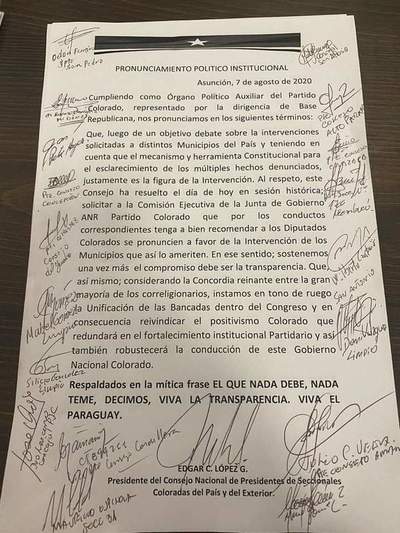 PRONUNCIAMIENTO POLITICO INSTITUCIONAL
Asunción, 7 de agosto de 2020
Cumpliendo como Órgano Político Auxiliar del Partido
Colorado, representado por la dirigencia de Base
Republicana, nos pronunciamos en los siguientes términos:
Que, luego de un objetivo debate sobre la intervenciones
solicitadas a distintos Municipios del País y teniendo en
cuenta que el mecanismo y herramienta Constitucional para
el esclarecimiento de los múltiples hechos denunciados,
justamente es la figura de la Intervención. Al respeto, este
Consejo ha resuelto el día de hoy en sesión histórica;
solicitar a la Comisión Ejecutiva de la Junta de Gobierno
ANR Partido Colorado que por los conductos
correspondientes tenga a bien recomendar a los Diputados
Colorados se pronuncien a favor de la Intervención de los
Municipios que así lo ameriten. En ese sentido; sostenemos
una vez más el compromiso debe ser la transparencia. Que,
así mismo; considerando la Concordia reinante entre la gran
mayoría de los correligionarios, instamos en tono de ruego
la Unificación de las Bancadas dentro del Congreso y en
consecuencia reivindicar el positivismo Colorado que
redundará en el fortalecimiento institucional Partidario y así
también robustecerá la conducción de este Gobierno
Nacional Colorado.
Respaldados en la mítica frase EL QUE NADA DEBE, NADA
TEME, DECIMOS, VIVA LA TRANSPARENCIA. VIVA EL
PARAGUAY.
EDGAR C. LÓPEZ G.
Presidente del Consejo Nacional de Presidentes de Seccionales
Coloradas del País y del Exterior.
San Pedro
Concepción
San Antonio
Limpio
Cordillera